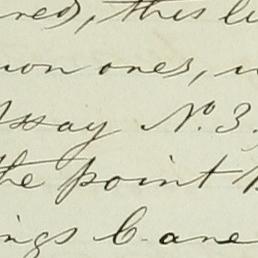 red, this li
on ones, u
ssay No. 3,
the point
ings Cane